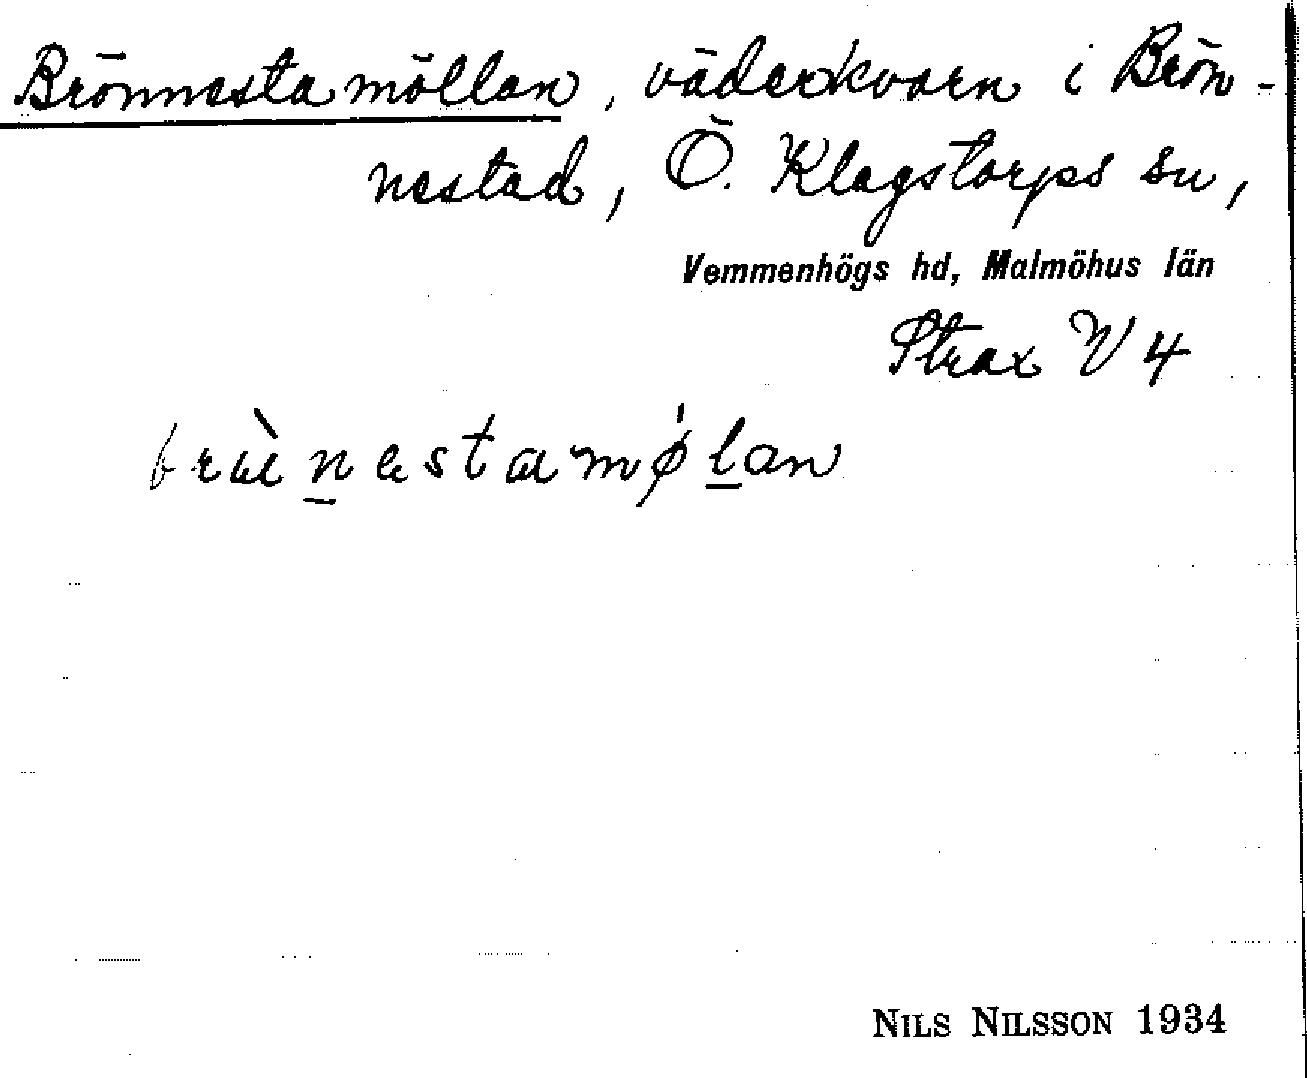 Brönnestamöllan, väderkvarn i Brön-
nestad, Ö. Klagstorps sn,
Vemmenhögs hd, Malmöhus län
Strax V 4
NILS NILSSON 1934